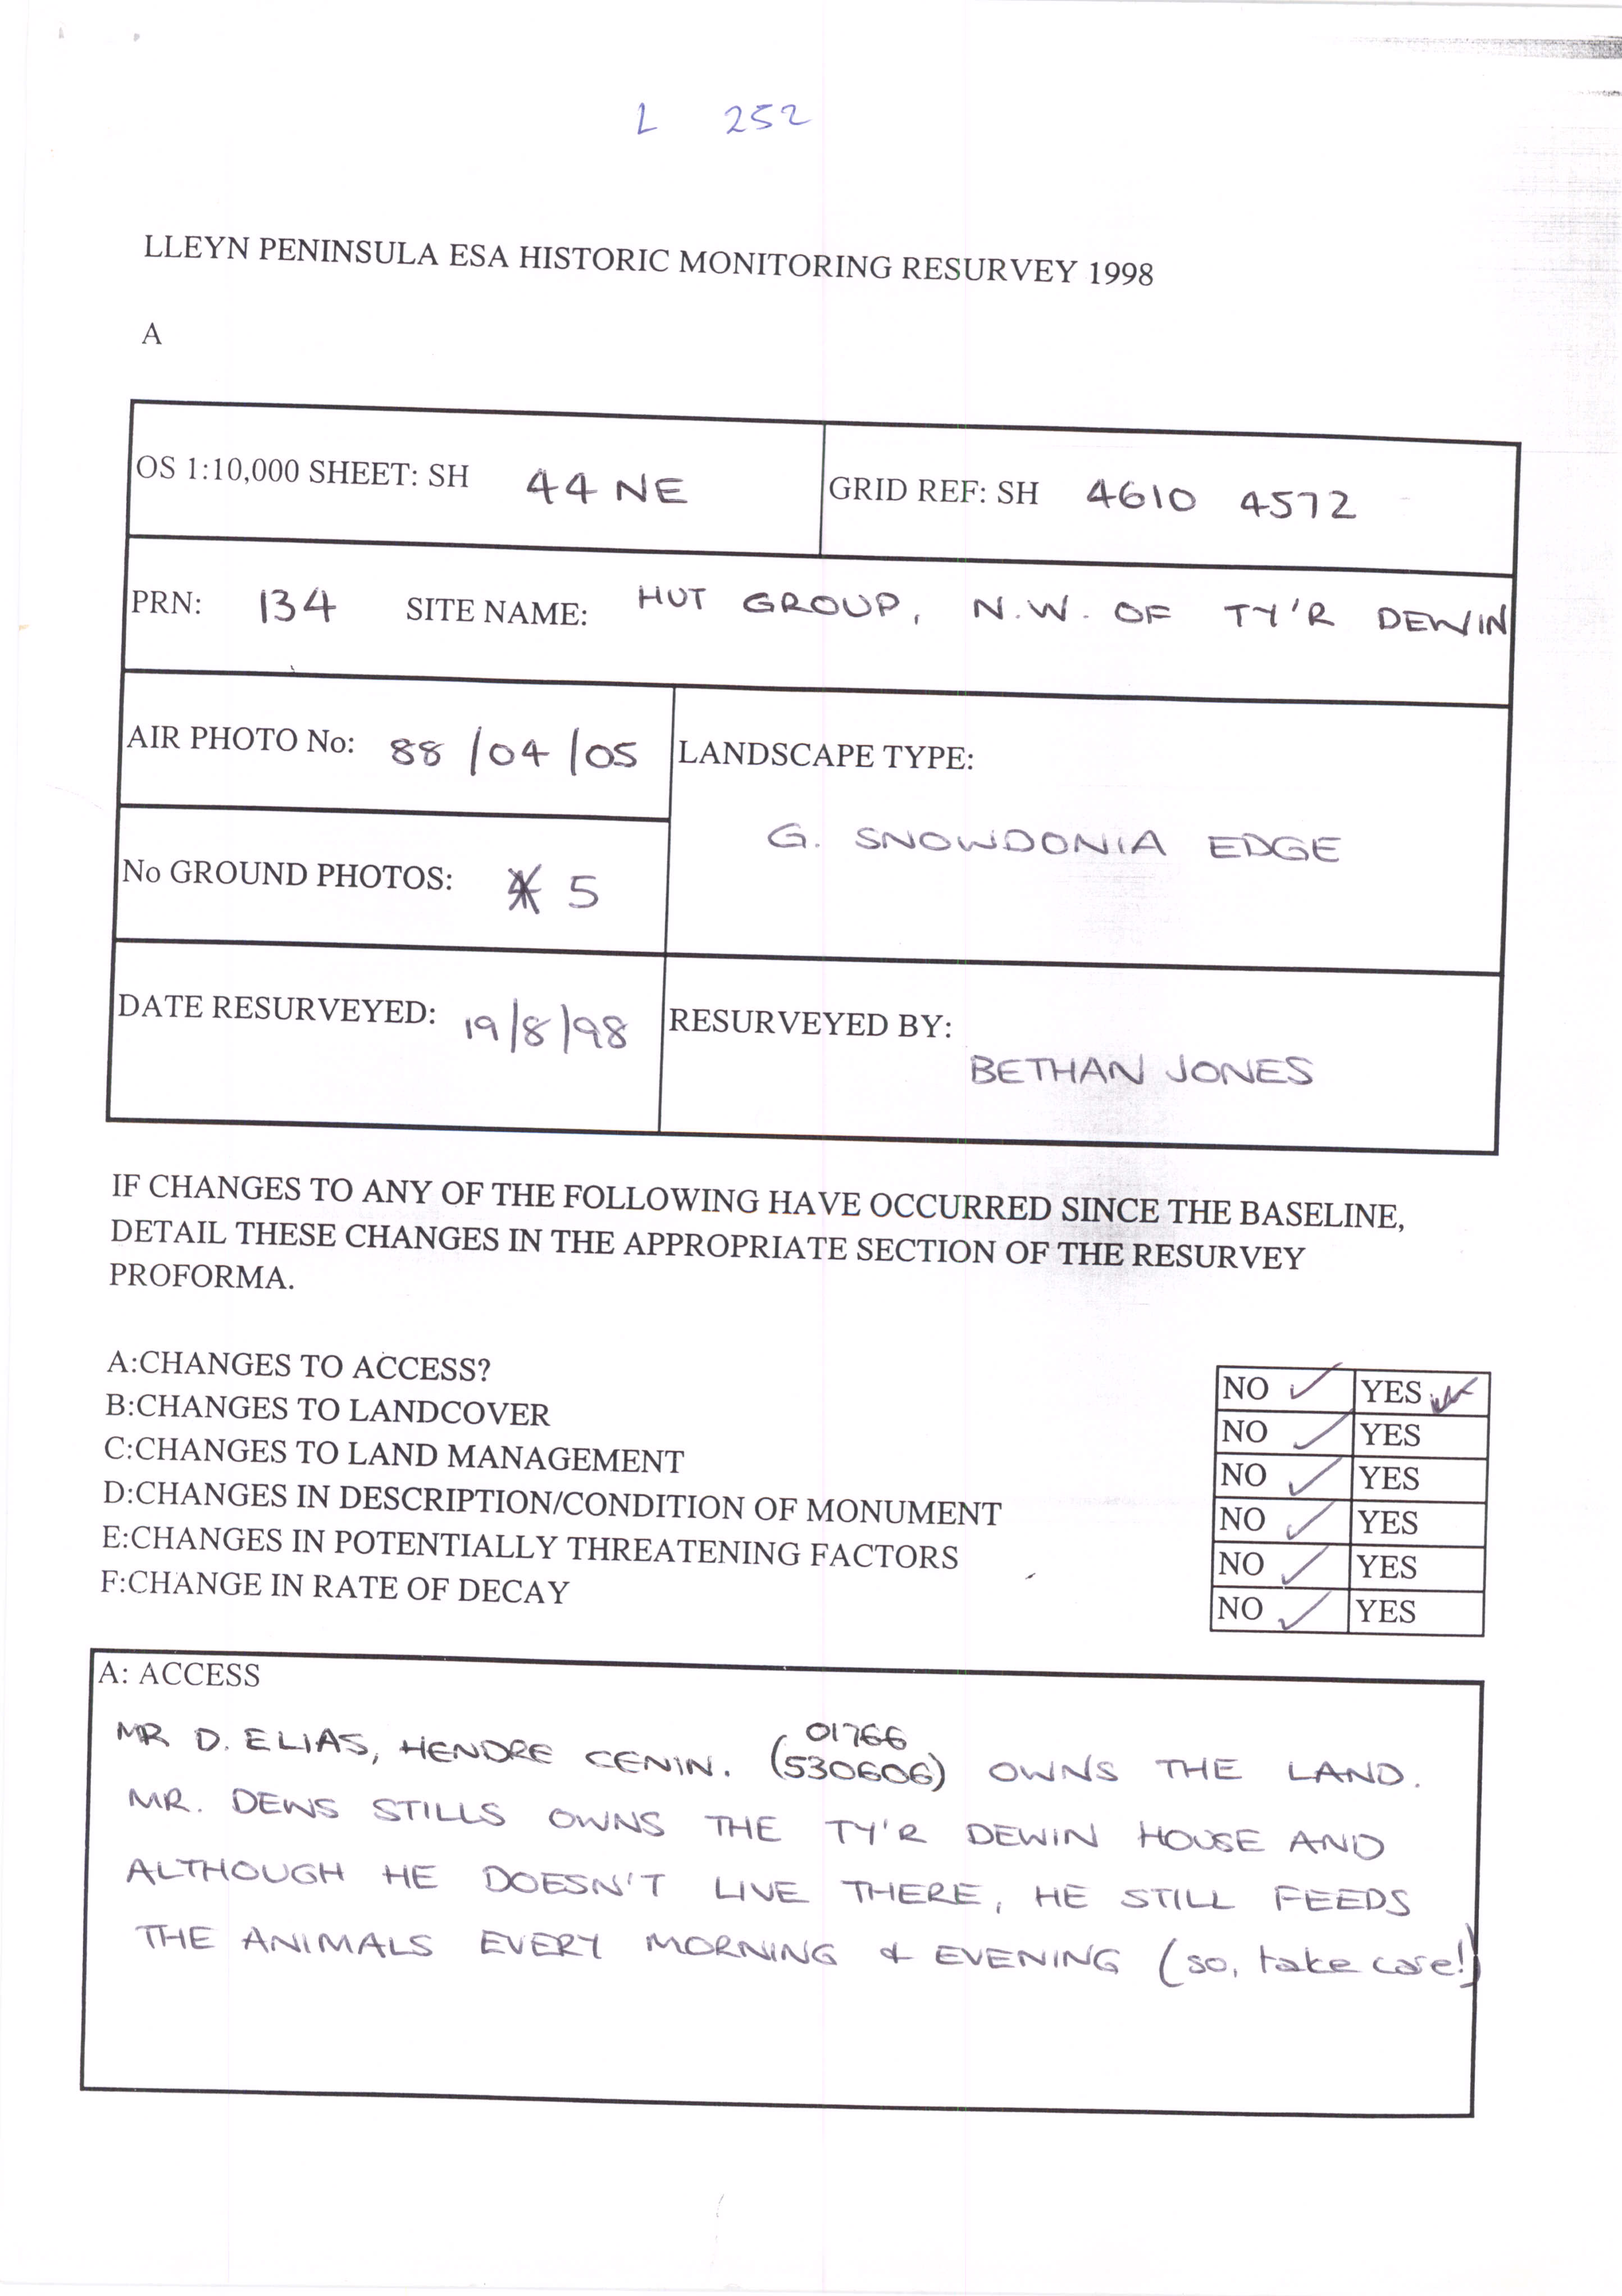 L 252
LLEYN PENINSULA ESA HISTORIC MONITORING RESURVEY 1998
A
OS 1:10,000 SHEET: SH 44 NE
GRID REF: SH 4610 4572
PRN: 134 SITE NAME: HUT GROUP, N.W. OF TY'R DEWIN
AIR PHOTO No: 88/04/05
LANDSCAPE TYPE:
G. SNOWDONIA EDGE
No GROUND PHOTOS: 5
DATE RESURVEYED: 19/8/98
RESURVEYED BY:
BETHAN JONES
IF CHANGES TO ANY OF THE FOLLOWING HAVE OCCURRED SINCE THE BASELINE,
DETAIL THESE CHANGES IN THE APPROPRIATE SECTION OF THE RESURVEY
PROFORMA.
A:CHANGES TO ACCESS? NO ✓ YES
B:CHANGES TO LANDCOVER NO ✓ YES
C:CHANGES TO LAND MANAGEMENT NO ✓ YES
D:CHANGES IN DESCRIPTION/CONDITION OF MONUMENT NO ✓ YES
E:CHANGES IN POTENTIALLY THREATENING FACTORS NO ✓ YES
F:CHANGE IN RATE OF DECAY NO ✓ YES
A: ACCESS
01766
MR D. ELIAS, HENDRE CENIN. (530606) OWNS THE LAND.
MR. DEWS STILLS OWNS THE TY'R DEWIN HOUSE AND
ALTHOUGH HE DOESN'T LIVE THERE, HE STILL FEEDS
THE ANIMALS EVERY MORNING & EVENING (so, take care!)